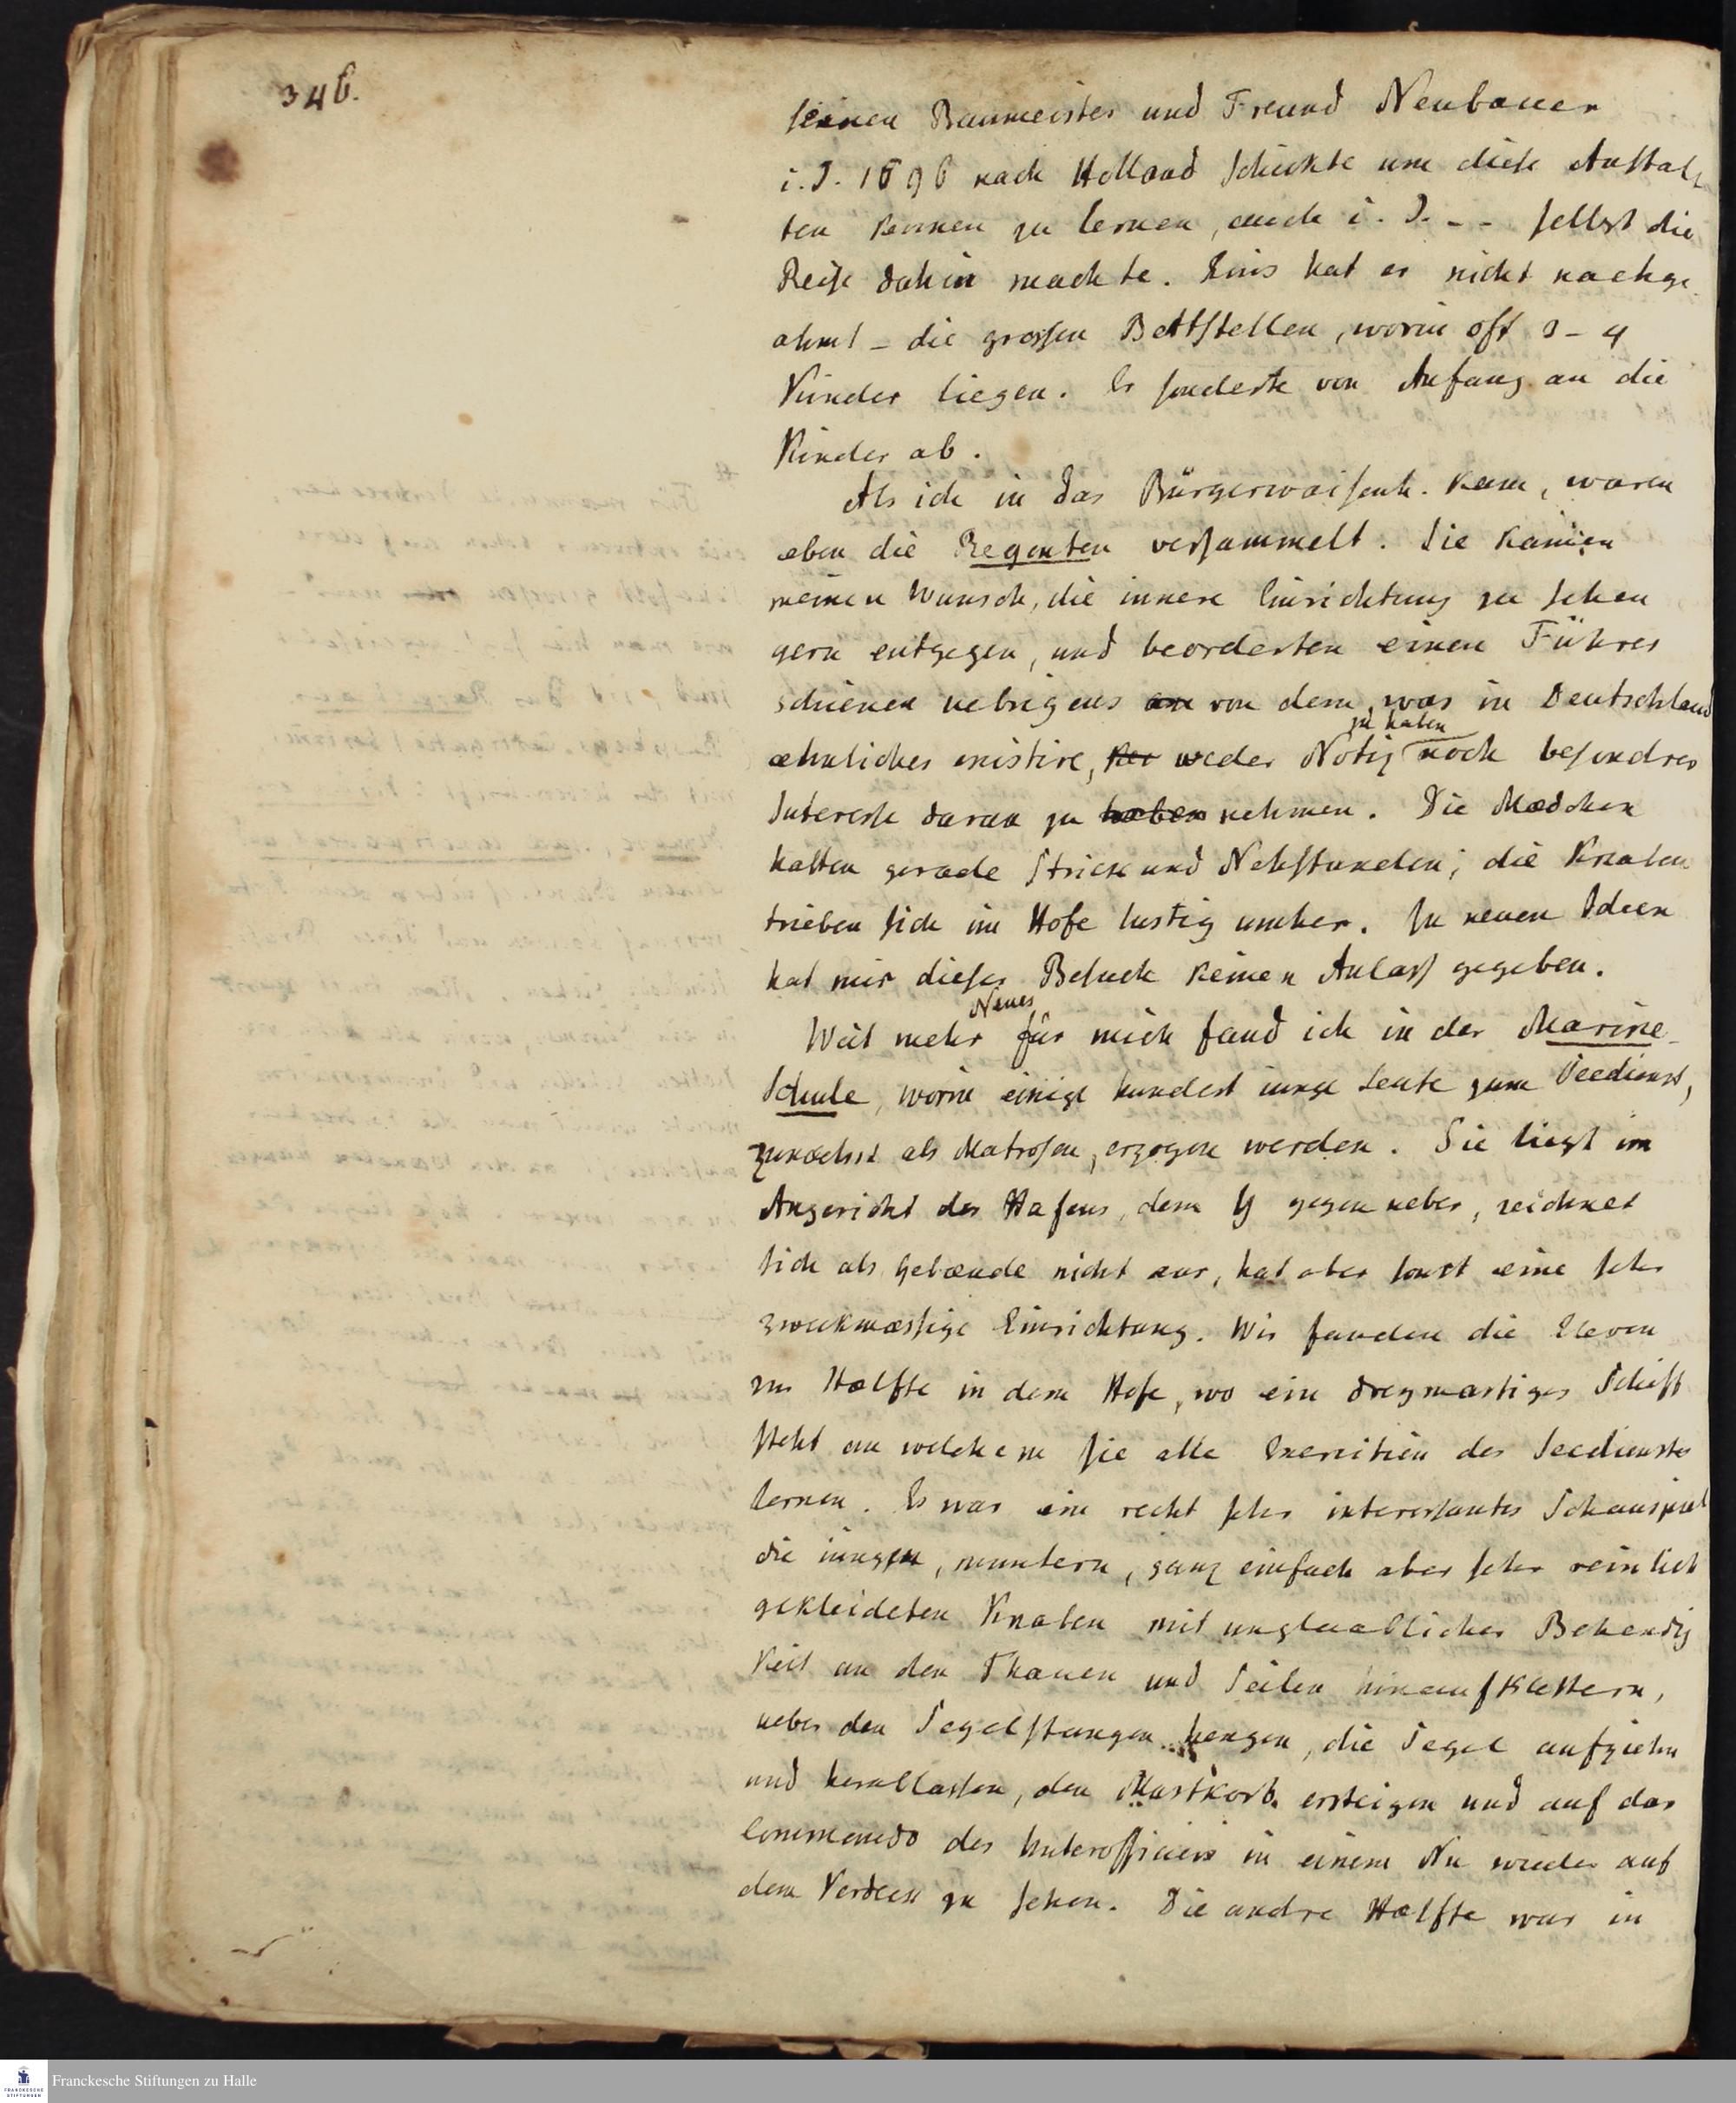 346.
seinen Baumeister und Freund Neubauer
i. J. 1696 nach Holland schickte um diese Anstal-
ten kennen zu lernen, auch i. J. -- selbst die
Reise dahin machte. Eins hat er nicht nachge-
ahmt – die grossen Bettstellen, worin oft 3–4
Kinder liegen. Er sonderte von Anfang an die
Kinder ab.
Als ich in das Bürgerwaisenh. kam, waren
eben die Regenten versammelt. Sie kamen
meinen Wunsch, die innere Einrichtung zu sehen
gern entgegen, und beorderten einen Führer
schienen uebrigens an von dem, was in Deutschland
zu haben
aehnliches existire, weder Notiz noch besondres
Interesse daran zu haben nehmen. Die Mædchen
hatten gerade Strick und Nehstunden; die Knaben
trieben sich im Hofe lustig umher. Zu neuen Ideen
hat mir dieser Besuch keinen Anlass gegeben.
Neues
Weit mehr für mich fand ich in der Marine-
Schule, worin einige hundert iunge Leute zum Seedienst,
zunaechst als Matrosen, erzogen werden. Sie liegt im
Angesicht des Hafens, dem Y gegenueber, zeichnet
sich als Gebæude nicht aus, hat aber sonst eine sehr
zweckmæssige Einrichtung. Wir fanden die Eleven
zur Hælfte in dem Hofe, wo ein dreymastiges Schiff
steht an welchem sie alle Exercitien des Seedienstes
lernen. Es war ein recht sehr interessantes Schauspiel
die iungen, muntern, ganz einfach aber sehr reinlich
gekleideten Knaben mit unglaublicher Behendig
keit an den Thauen und Seilen hinaufklettern,
ueber den Segelstangen hengen, die Segel aufziehn
und herablassen, den Mastkorb ersteigen und auf das
Commando des Unterofficiers in einem Nu wieder auf
dem Verdeck zu sehen. Die andre Hælfte war in
Franckesche Stiftungen zu Halle
FRANCKESCHE
STIFTUNGEN